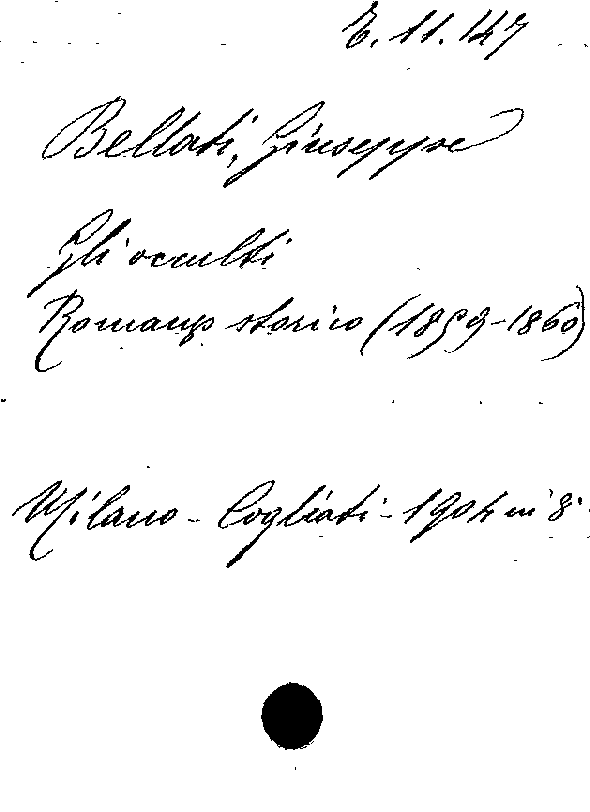 E. 11. 147
Bellati, Giuseppe
Gli occulti
Romanzo storico (1859-1860)
Milano - Cogliati - 1904 in 8°